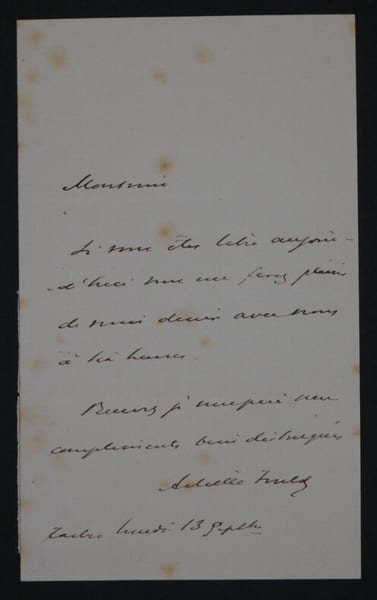 Monsieur
Si vous êtes libre aujour-
d'hui vous me ferez plaisir
de venir diner avec nous
à six heures.
Recevez je vous prie mes
compliments bien distingués
Achille Fould
Tarbes lundi 13 Septbre